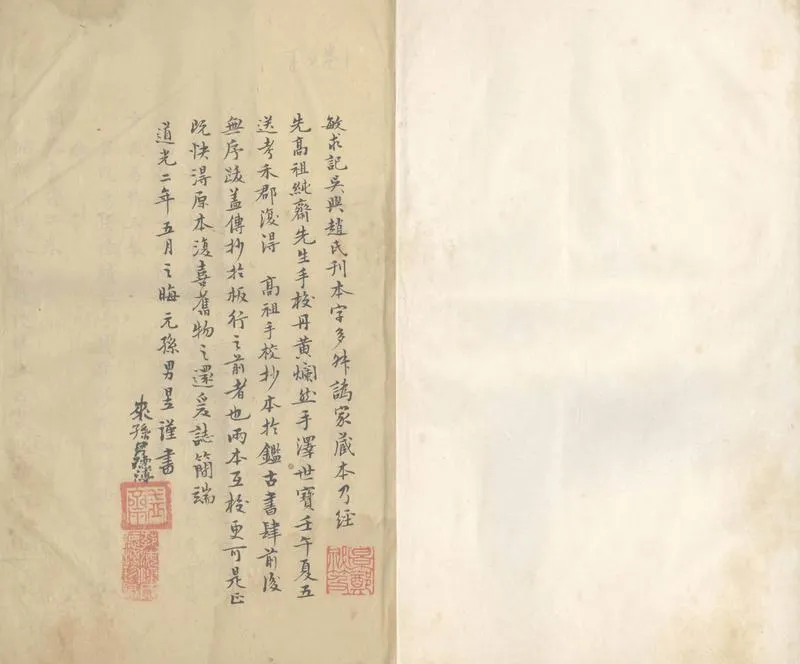 敏求記吳興趙氏刊本字多舛譌家藏本乃經
先高祖純齋先生手校丹黃爛然手澤世寶壬午夏五
送考禾郡復得 高祖手校抄本於鑑古書肆前後
無序跋蓋傳抄於板行之前者也兩本互校更可是正
既快得原本復喜舊物之還爰誌簡端
道光二年五月之晦元孫男昱謹書
來孫